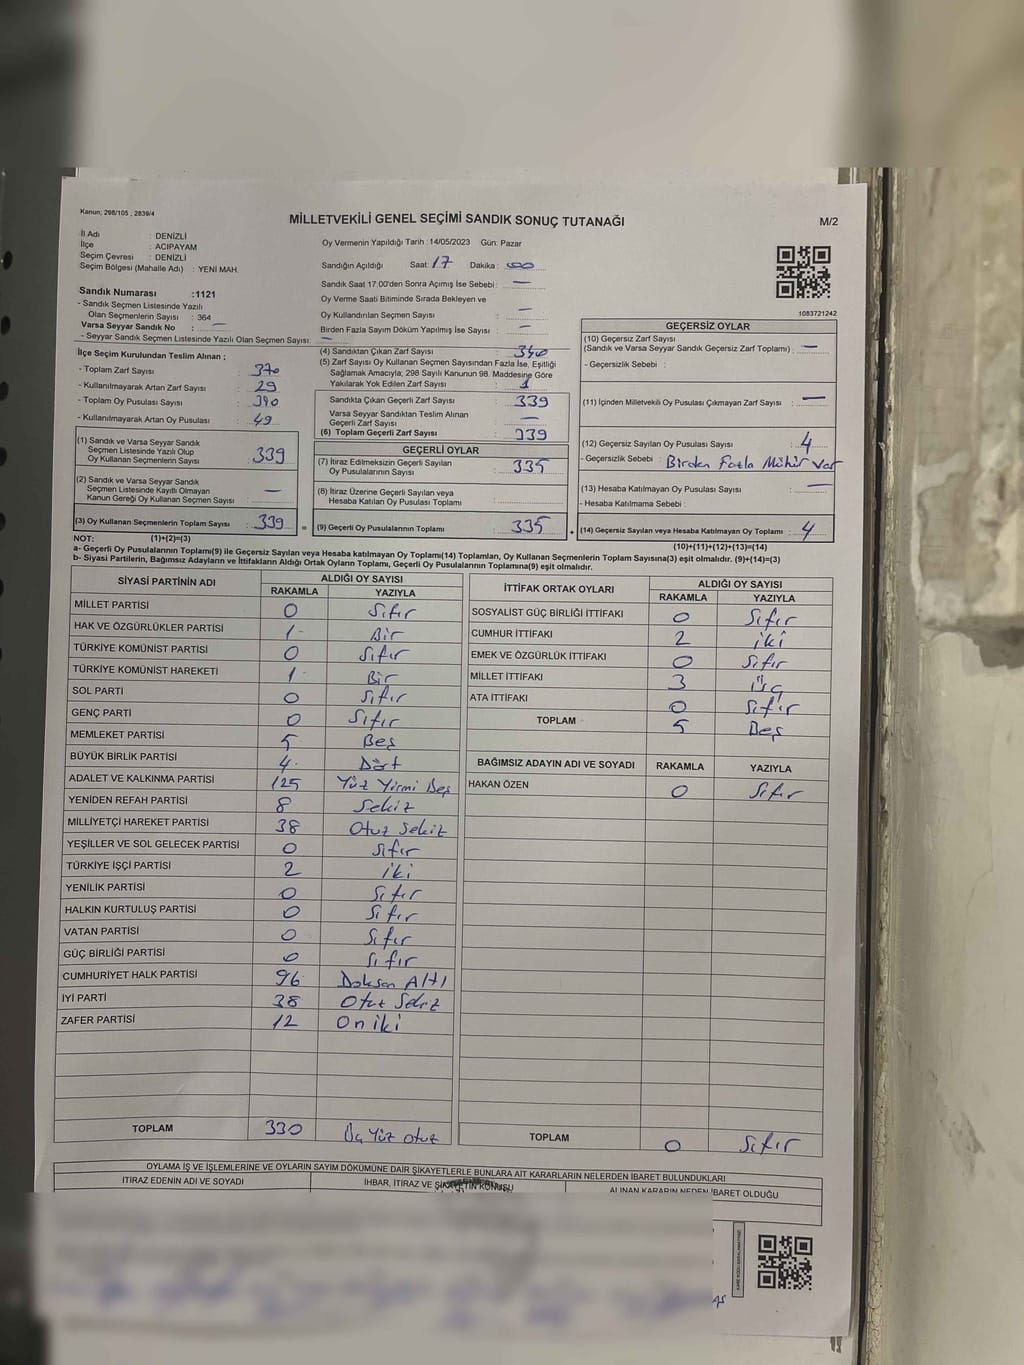 Kanun; 298/105 , 2839/4
MİLLETVEKİLİ GENEL SEÇİMİ SANDIK SONUÇ TUTANAĞI
M/2
İl Adı : DENİZLİ
İlçe : ACIPAYAM
Seçim Çevresi : DENİZLİ
Seçim Bölgesi (Mahalle Adı) : YENİ MAH.
Oy Vermenin Yapıldığı Tarih : 14/05/2023 Gün: Pazar
Sandığın Açıldığı Saat: 17 Dakika : 00
Sandık Saat 17.00'den Sonra Açılmış İse Sebebi : —
Oy Verme Saati Bitiminde Sırada Bekleyen ve
Oy Kullandırılan Seçmen Sayısı : —
Birden Fazla Sayım Döküm Yapılmış İse Sayısı : —
Sandık Numarası :1121
- Sandık Seçmen Listesinde Yazılı
Olan Seçmenlerin Sayısı : 364
Varsa Seyyar Sandık No : —
- Seyyar Sandık Seçmen Listesinde Yazılı Olan Seçmen Sayısı: —
İlçe Seçim Kurulundan Teslim Alınan ;
- Toplam Zarf Sayısı : 370
- Kullanılmayarak Artan Zarf Sayısı : 29
- Toplam Oy Pusulası Sayısı : 390
- Kullanılmayarak Artan Oy Pusulası : 49
(1) Sandık ve Varsa Seyyar Sandık
Seçmen Listesinde Yazılı Olup
Oy Kullanan Seçmenlerin Sayısı : 339
(2) Sandık ve Varsa Seyyar Sandık
Seçmen Listesinde Kayıtlı Olmayan
Kanun Gereği Oy Kullanan Seçmen Sayısı : —
(3) Oy Kullanan Seçmenlerin Toplam Sayısı : 339
(4) Sandıktan Çıkan Zarf Sayısı : 340
(5) Zarf Sayısı Oy Kullanan Seçmen Sayısından Fazla İse, Eşitliği
Sağlamak Amacıyla; 298 Sayılı Kanunun 98. Maddesine Göre
Yakılarak Yok Edilen Zarf Sayısı : 1
Sandıkta Çıkan Geçerli Zarf Sayısı : 339
Varsa Seyyar Sandıktan Teslim Alınan
Geçerli Zarf Sayısı : —
(6) Toplam Geçerli Zarf Sayısı : 339
GEÇERLİ OYLAR
(7) İtiraz Edilmeksizin Geçerli Sayılan
Oy Pusulalarının Sayısı : 335
(8) İtiraz Üzerine Geçerli Sayılan veya
Hesaba Katılan Oy Pusulası Toplamı :
= (9) Geçerli Oy Pusulalarının Toplamı : 335 +
1083721242
GEÇERSİZ OYLAR
(10) Geçersiz Zarf Sayısı
(Sandık ve Varsa Seyyar Sandık Geçersiz Zarf Toplamı) : —
- Geçersizlik Sebebi :
(11) İçinden Milletvekili Oy Pusulası Çıkmayan Zarf Sayısı : —
(12) Geçersiz Sayılan Oy Pusulası Sayısı : 4
- Geçersizlik Sebebi : Birden Fazla Mühür var
(13) Hesaba Katılmayan Oy Pusulası Sayısı : —
- Hesaba Katılmama Sebebi :
(14) Geçersiz Sayılan veya Hesaba Katılmayan Oy Toplamı : 4
NOT: (1)+(2)=(3)
(10)+(11)+(12)+(13)=(14)
a- Geçerli Oy Pusulalarının Toplamı(9) ile Geçersiz Sayılan veya Hesaba katılmayan Oy Toplamı(14) Toplamları, Oy Kullanan Seçmenlerin Toplam Sayısına(3) eşit olmalıdır. (9)+(14)=(3)
b- Siyasi Partilerin, Bağımsız Adayların ve İttifakların Aldığı Ortak Oyların Toplamı, Geçerli Oy Pusulalarının Toplamına(9) eşit olmalıdır.
SİYASİ PARTİNİN ADI ALDIĞI OY SAYISI
RAKAMLA YAZIYLA
MİLLET PARTİSİ 0 Sıfır
HAK VE ÖZGÜRLÜKLER PARTİSİ 1 Bir
TÜRKİYE KOMÜNİST PARTİSİ 0 Sıfır
TÜRKİYE KOMÜNİST HAREKETİ 1 Bir
SOL PARTİ 0 Sıfır
GENÇ PARTİ 0 Sıfır
MEMLEKET PARTİSİ 5 Beş
BÜYÜK BİRLİK PARTİSİ 4 Dört
ADALET VE KALKINMA PARTİSİ 125 Yüz Yirmi Beş
YENİDEN REFAH PARTİSİ 8 Sekiz
MİLLİYETÇİ HAREKET PARTİSİ 38 Otuz Sekiz
YEŞİLLER VE SOL GELECEK PARTİSİ 0 Sıfır
TÜRKİYE İŞÇİ PARTİSİ 2 iki
YENİLİK PARTİSİ 0 Sıfır
HALKIN KURTULUŞ PARTİSİ 0 Sıfır
VATAN PARTİSİ 0 Sıfır
GÜÇ BİRLİĞİ PARTİSİ 0 Sıfır
CUMHURİYET HALK PARTİSİ 96 Doksan Altı
İYİ PARTİ 38 Otuz Sekiz
ZAFER PARTİSİ 12 On iki
TOPLAM 330 Üç Yüz otuz
İTTİFAK ORTAK OYLARI ALDIĞI OY SAYISI
RAKAMLA YAZIYLA
SOSYALİST GÜÇ BİRLİĞİ İTTİFAKI 0 Sıfır
CUMHUR İTTİFAKI 2 iki
EMEK VE ÖZGÜRLÜK İTTİFAKI 0 Sıfır
MİLLET İTTİFAKI 3 Üç
ATA İTTİFAKI 0 Sıfır
TOPLAM 5 Beş
BAĞIMSIZ ADAYIN ADI VE SOYADI RAKAMLA YAZIYLA
HAKAN ÖZEN 0 Sıfır
TOPLAM 0 Sıfır
OYLAMA İŞ VE İŞLEMLERİNE VE OYLARIN SAYIM DÖKÜMÜNE DAİR ŞİKAYETLERLE BUNLARA AİT KARARLARIN NELERDEN İBARET BULUNDUKLARI
İTİRAZ EDENİN ADI VE SOYADI İHBAR, İTİRAZ VE ŞİKAYETİN KONUSU ALINAN KARARIN NEDEN İBARET OLDUĞU